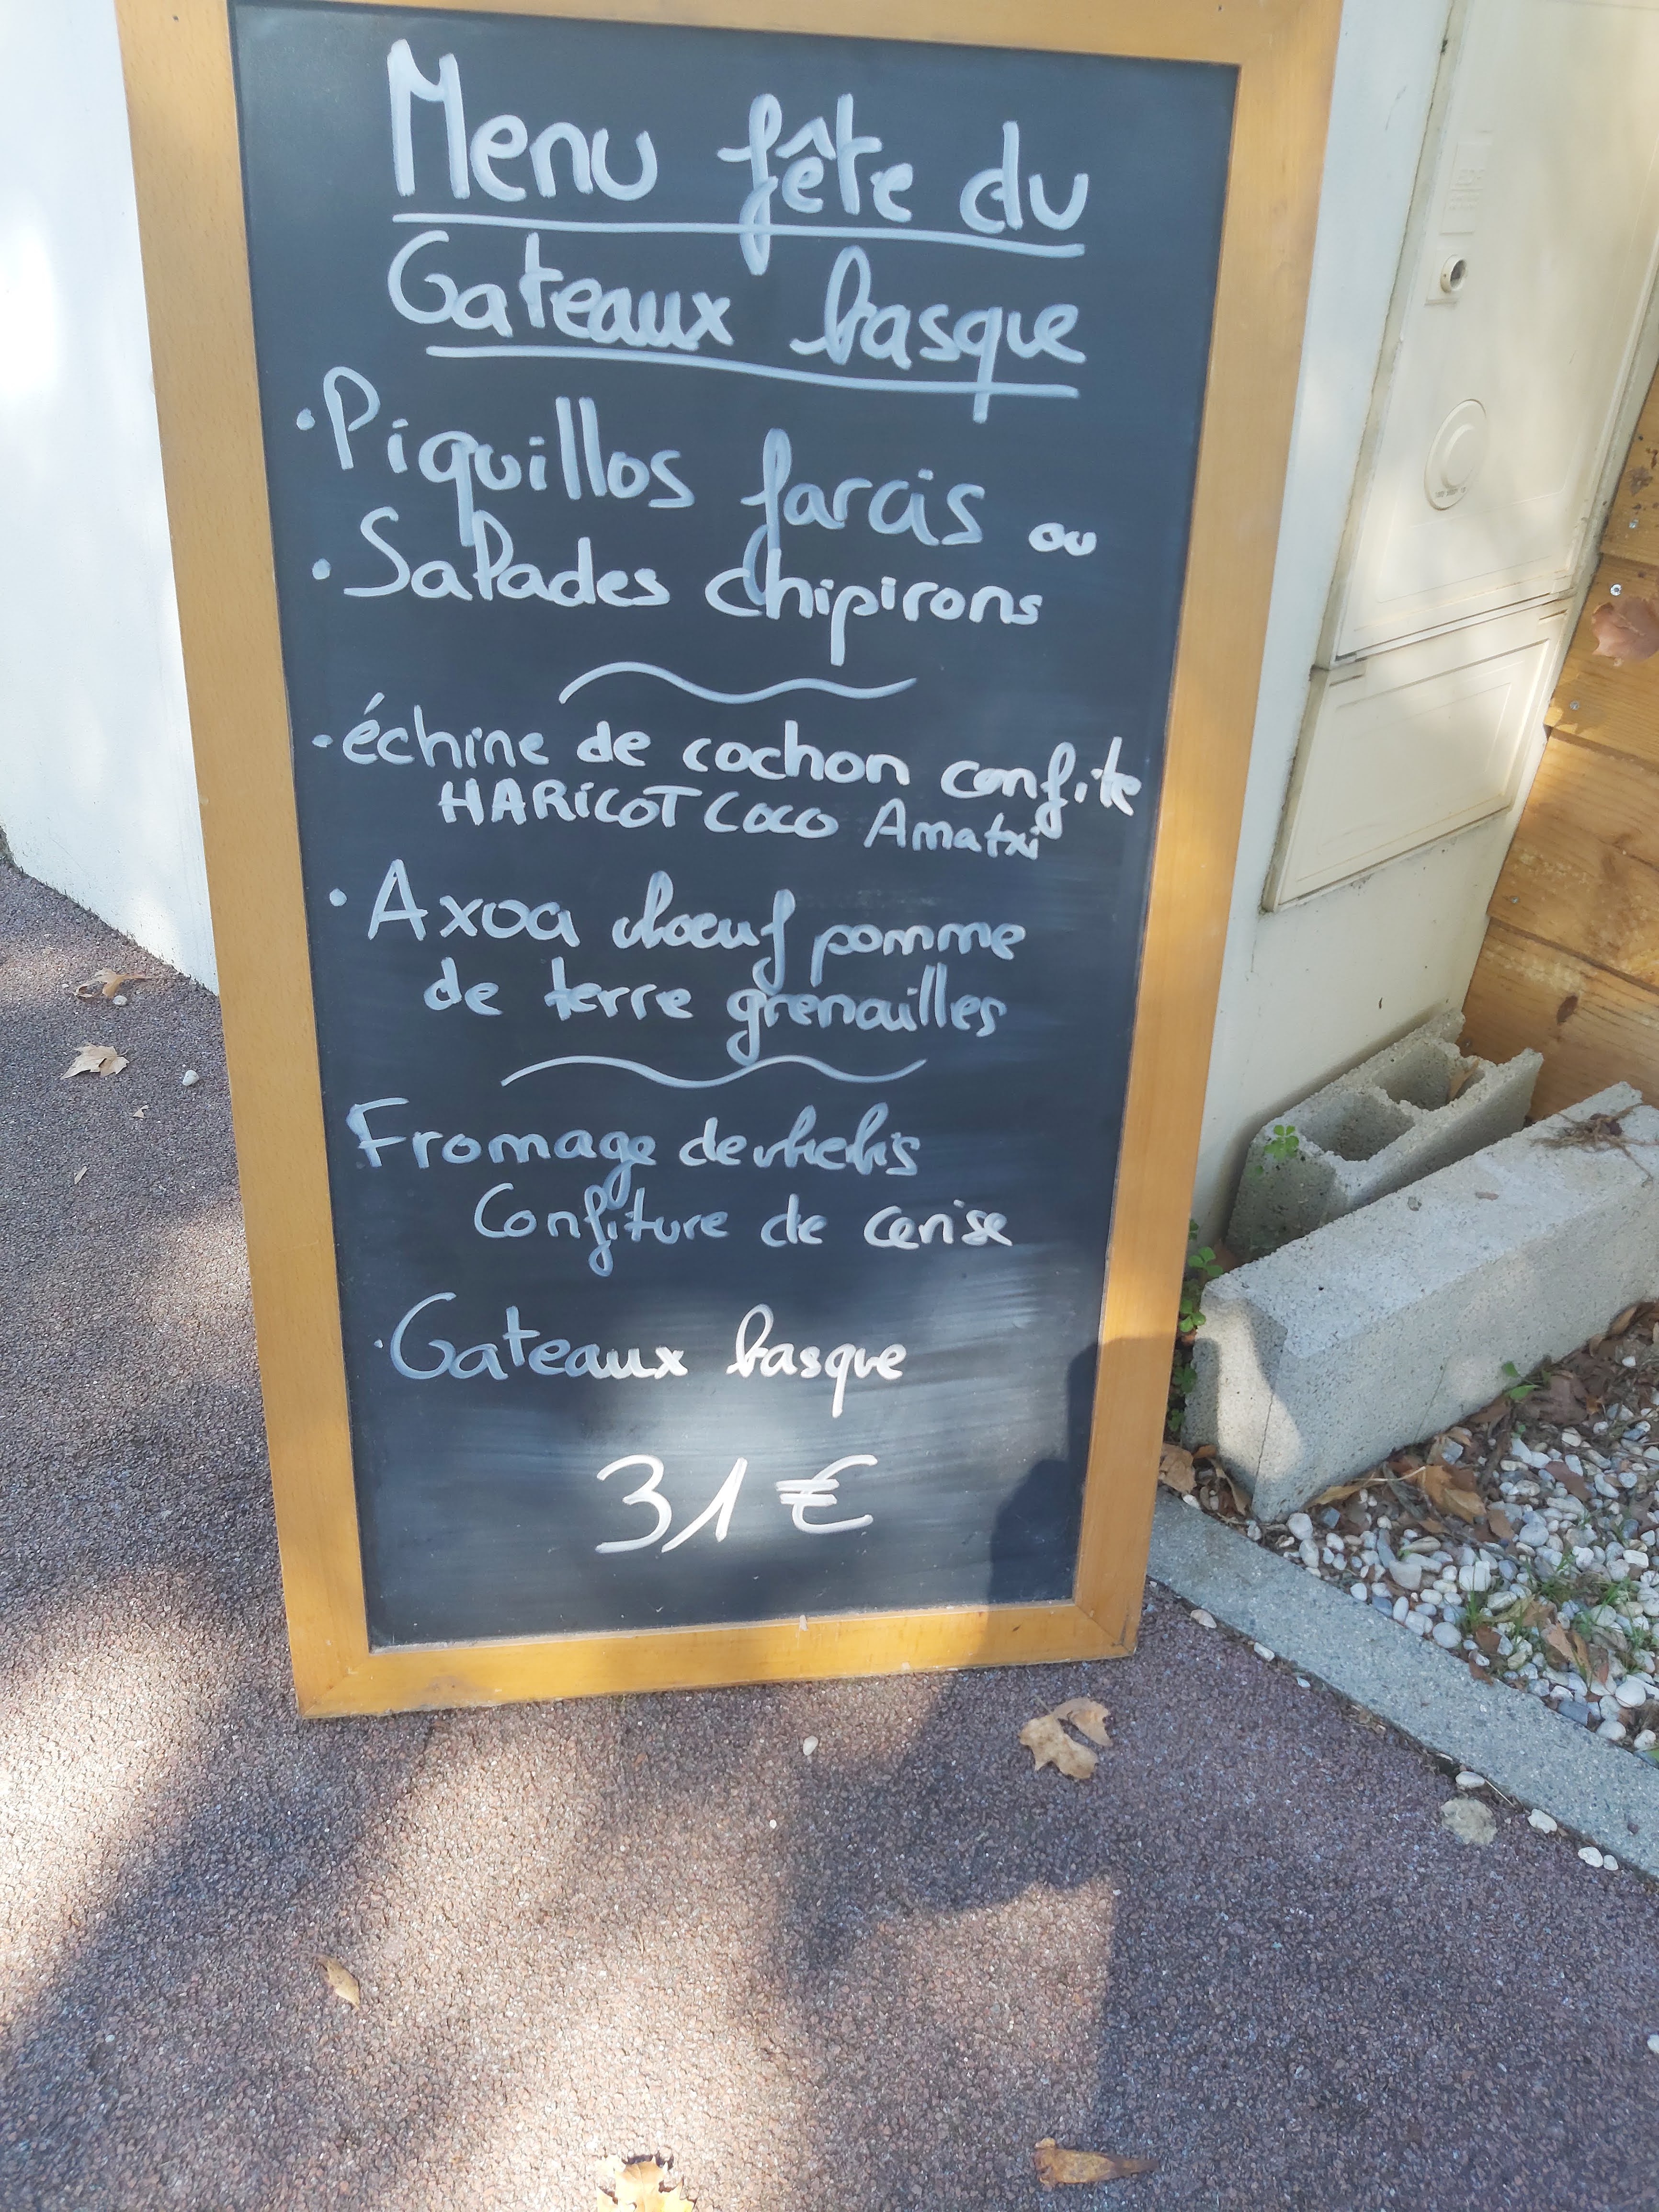 Menu fête du
Gateaux basque
• Piquillos farcis ou
• Salades chipirons
• échine de cochon confite
HARICOT COCO Amatxi
• Axoa boeuf pomme
de terre grenailles
Fromage de brebis
Confiture de cerise
• Gateaux basque
31€